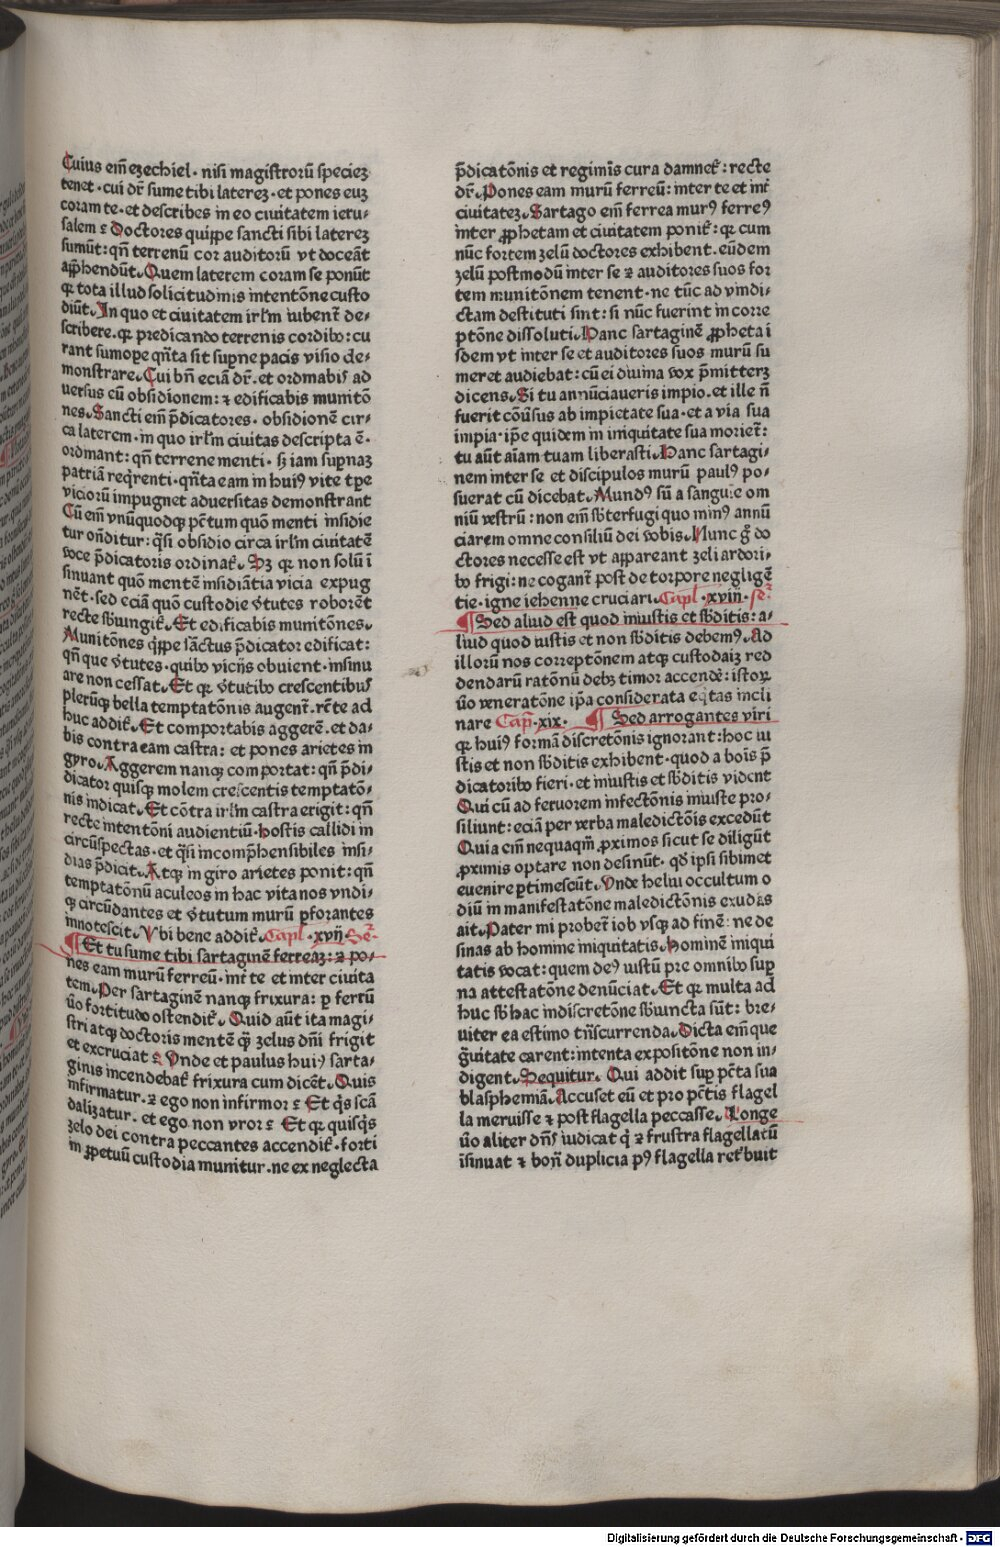 Cuius em̄ ezechiel · nisi magistroꝝ̄ speciez
tenet · cui dr̄ sume tibi laterez · et pones euz
coram te · et describes in eo ciuitatem ieru⸗
salem ꝛ Doctores quippe sancti sibi laterez
sumūt : qn̄ terrenū cor auditorū vt doceāt
app̄hendūt. Quem laterem coram se ponūt
qꝛ tota illud solicitudinis intentōne custo
diūt. In quo et ciuitatem irl̄m iubent̄ de⸗
scribere. qꝛ predicando terrenis cordibꝰ : cu
rant sumope qn̄ta sit sup̄ne pacis visio de⸗
monstrare. Cui bn̄ eciā dr̄. et ordinabis ad
uersus eū obsidionem : ⁊ edificabis munitō
nes. Sancti em̄ p̄dicatores · obsidionē cir⸗
ca laterem · in quo irl̄m ciuitas descripta ē ·
ordinant : qn̄ terrene menti · sꝫ iam sup̄naz
patriā reqͥrenti · qn̄ta eam in huiꝰ vite tp̄e
viciorū impugnet aduersitas demonstrant
Cū em̄ vnūquodqꝫ pc̄tum quō menti insidie
tur on̄ditur : qͣsi obsidio circa irl̄m ciuitatē
voce p̄dicatoris ordinat̄. Sꝫ qꝛ non solū ī
sinuant quō mentē insidiātia vicia expug
nēt · sed eciā quō custodie v̄tutes roborēt
recte sb̄iungit̄. Et edificabis munitōnes.
Munitōnes qͥppe sāctus p̄dicator edificat :
qn̄ que v̄tutes · quibꝰ vicijs obuient · insinu
are non cessat. Et qꝛ v̄tutibꝰ crescentibus
plerūqꝫ bella temptatōnis augent̄ · recte ad
huc addit̄. Et comportabis aggerē. et da⸗
bis contra eam castra : et pones arietes in
gyro. Aggerem nanqꝫ comportat : qn̄ p̄di⸗
dicator quisqꝫ molem crescentis temptatō⸗
nis indicat. Et cōtra irl̄m castra erigit : qn̄
recte intentōni audientiū · hostis callidi in
circūspectas · et qͣsi incomp̄hensibiles insi⸗
dias p̄dicit. Atqꝫ in giro arietes ponit : qn̄
temptatōnū aculeos in hac vita nos vndi⸗
qꝫ circūdantes et v̄tutum murū ꝑforantes
innotescit. Vbi bene addit̄. Capl̄ · xvij Seqͥ
¶ Et tu sume tibi sartaginē ferreaz : ⁊ po⸗
nes eam murū ferreū · int̄ te et inter ciuita
tem. Per sartaginē nanqꝫ frixura : ꝑ ferrū
v̄o fortitudo ostendit̄. Quid aūt ita magi⸗
stri atqꝫ doctoris mentē qꝫ zelus dn̄i frigit
et excruciat ꝛ Vnde et paulus huiꝰ sarta⸗
ginis incendebat̄ frixura cum dicēt. Quis
infirmatur. ⁊ ego non infirmor ꝛ Et qͥs scā
dalizatur. et ego non vror ꝛ Et qꝛ quisqͥs
zelo dei contra peccantes accendit̄ · forti
in ꝑpetuū custodia munitur · ne ex neglecta
p̄dicatōnis et regiminis cura damnet̄ : recte
dr̄. Pones eam murū ferreū : inter te et int̄
ciuitatez. Sartago em̄ ferrea murꝰ ferreꝰ
inter ꝓphetam et ciuitatem ponit̄ : qꝛ cum
nūc fortem zelū doctores exhibent · eūdem
zelū postmodū inter se ⁊ auditores suos for
tem munitōnem tenent · ne tūc ad vindi⸗
ctam destituti sint : si nūc fuerint in corre
ptōne dissoluti. Hanc sartaginē ꝓpheta i
sdem vt inter se et auditores suos murū su
meret audiebat : cū ei diuina vox p̄mitterz
dicens. Si tu annūciaueris impio. et ille n̄
fuerit cōuersus ab impietate sua · et a via sua
impia · ip̄e quidem in iniquitate sua moriet̄ :
tu aūt aīam tuam liberasti. Hanc sartagi⸗
nem inter se et discipulos murū paulꝰ po⸗
suerat cū dicebat. Mundꝰ sū a sanguīe om
niū vestrū : non em̄ sb̄terfugi quo minꝰ annū
ciarem omne consiliū dei vobis. Nunc gͦ do
ctores necesse est vt appareant zeli ardori⸗
bꝰ frigi : ne cogant̄ post de torpore negligē
tie · igne iehenne cruciari. Capl̄ · xviij · seqͥ
¶ Sed aliud est quod iniustis et sb̄ditis : a⸗
liud quod iustis et non sb̄ditis debemꝰ. Ad
illorū nos correptōnem atqꝫ custodiaz red
dendarū ratōnū debꝫ timor accendē : istoꝝ
v̄o veneratōne ip̄a considerata eqͥtas incli
nare Cap̄ · xix · ¶ Sed arrogantes viri
qꝛ huiꝰ formā discretōnis ignorant : hoc iu
stis et non sb̄ditis exhibent · quod a bonis p̄
dicatoribꝰ fieri · et iniustis et sb̄ditis vident
Qui cū ad feruorem infectōnis iniuste pro⸗
siliunt : eciā per verba maledictōis excedūt
Quia em̄ nequaqͣm ꝓximos sicut se diligūt
ꝓximis optare non desinūt · qd̄ ipsi sibimet
euenire ꝑtimescūt. Vnde heliu occultum o
diū in manifestatōne maledictōnis exudās
ait. Pater mi probet̄ iob vsqꝫ ad finē : ne de
sinas ab homine iniquitatis. Hominē iniqui
tatis vocat : quem deꝰ iustū pre omnibꝰ suꝑ
na attestatōne denūciat. Et qꝛ multa ad
huc sb̄ hac indiscretōne sb̄iuncta sūt : bre⸗
uiter ea estimo trāscurrenda. Dicta em̄ que
gͣuitate carent : intenta expositōne non in⸗
digent. Sequitur. Qui addit suꝑ pc̄ta sua
blasphemiā. Accuset eū et pro pc̄tis flagel
la meruisse ⁊ post flagella peccasse. Longe
v̄o aliter dn̄s iudicat qͥ ⁊ frustra flagellatū
īsinuat ⁊ bon̄ duplicia pꝰ flagella ret̄buit
Digitalisierung gefördert durch die Deutsche Forschungsgemeinschaft · DFG